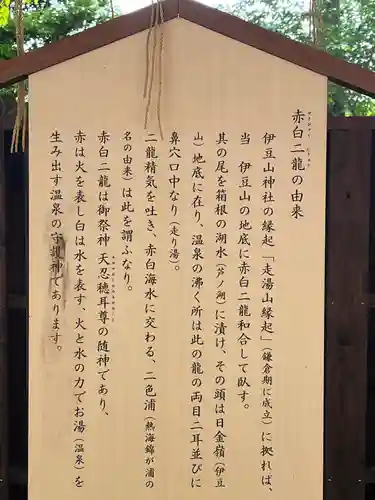 赤白二龍の由来
マタシャク
ニリュウ
伊豆山神社の縁起「走湯山縁起」(鎌倉期に成立)に拠れば、
当 伊豆山の地底に赤白二龍和合して臥す。
其の尾を箱根の湖水(芦ノ湖)に漬け、その頭は日金嶺(伊豆
山)地底に在り、温泉の沸く所は此の龍の両目二耳並びに
鼻穴口中なり(走り湯)。
二龍精気を吐き、赤白海水に交わる、二色浦(熱海錦が浦の
名の由来)は此を謂ふなり。
赤白二龍は御祭神 天忍穂耳尊の随神であり、
赤は火を表し白は水を表す、火と水の力でお湯(温泉)を
生み出す温泉の守護神であります。